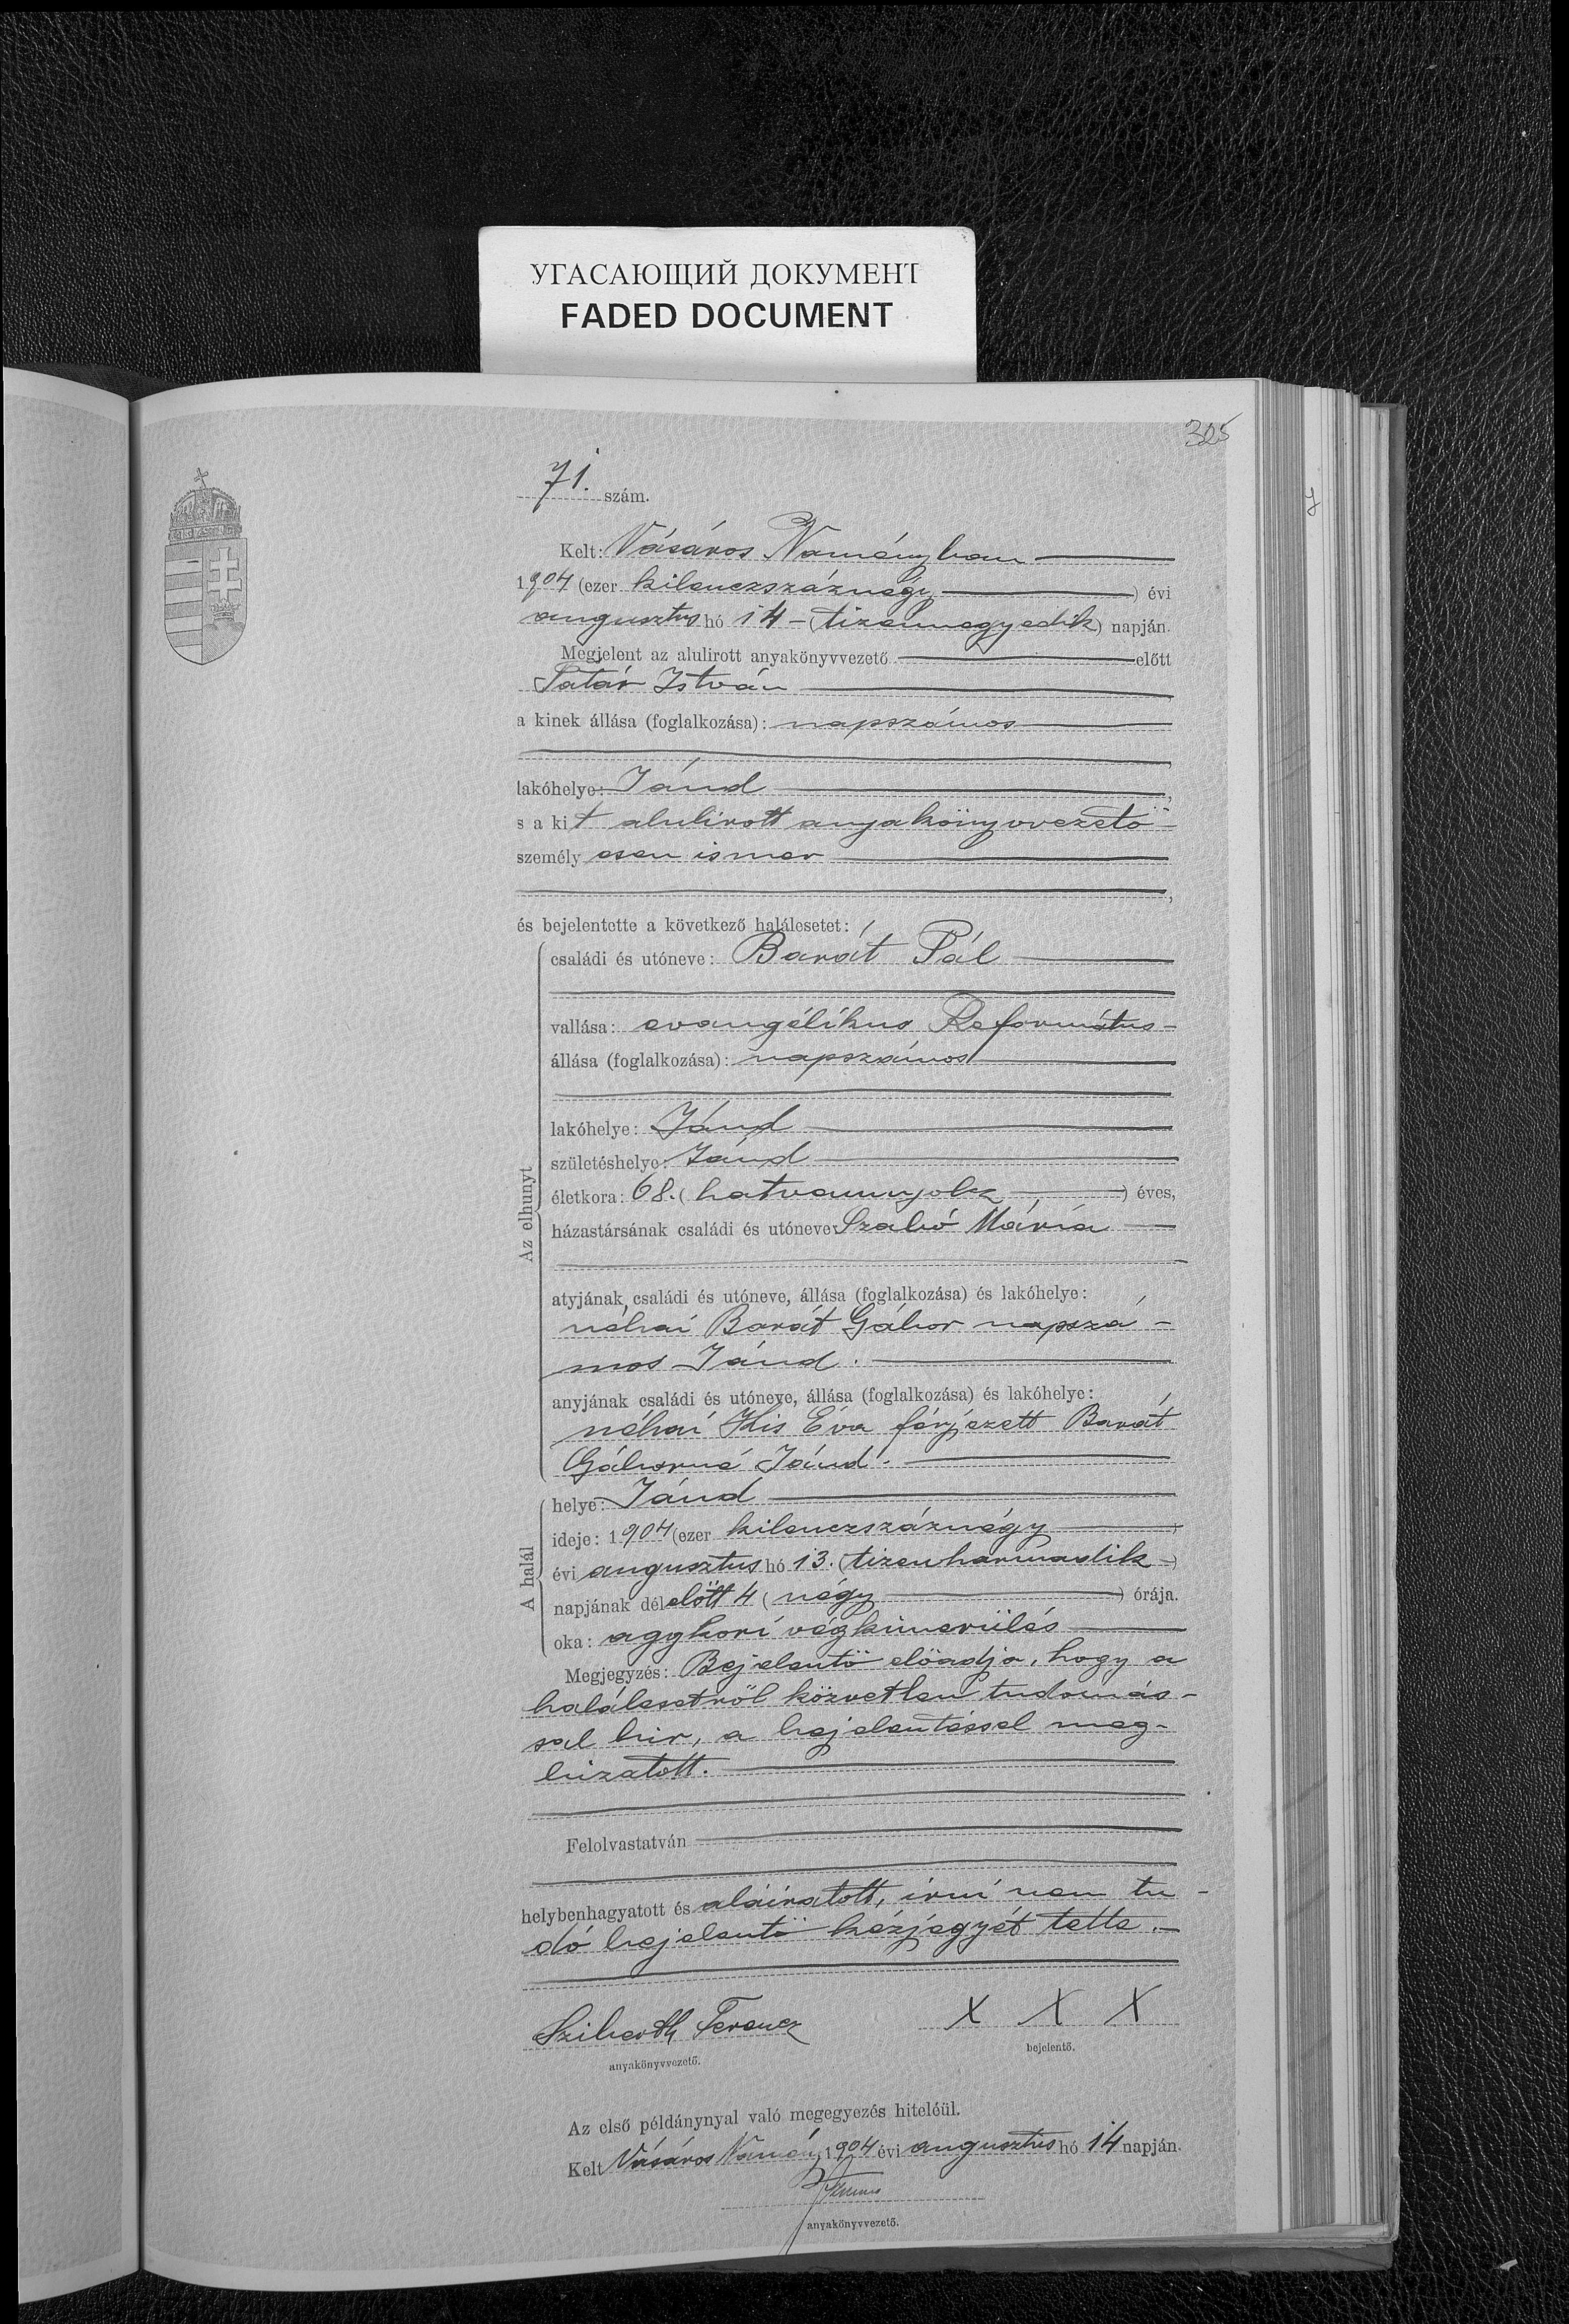 УГАСАЮЩИЙ ДОКУМЕНТ
FADED DOCUMENT
325
71. szám.
Kelt: Vásáros Naményban
1904 (ezer kilenczszáznégy) évi
augusztus hó 14 - (tizennegyedik) napján.
Megjelent az alulirott anyakönyvvezető előtt
Tatár István
a kinek állása (foglalkozása): napszámos
lakóhelye: Jánd
s a kit alulirott anyakönyvvezető
személyesen ismer
és bejelentette a következő halálesetet:
Az elhunyt
családi és utóneve: Barát Pál
vallása: evangélikus Református
állása (foglalkozása): napszámos
lakóhelye: Jánd
születéshelye: Jánd
életkora: 68. (hatvannyolcz) éves,
házastársának családi és utóneve: Szabó Mária
atyjának családi és utóneve, állása (foglalkozása) és lakóhelye:
néhai Barát Gábor napszá-
mos Jánd.
anyjának családi és utóneve, állása (foglalkozása) és lakóhelye:
néhai Kis Éva férjezett Barát
Gáborné Jánd.
A halál
helye: Jánd
ideje: 1904 (ezer kilenczszáznégy)
évi augusztus hó 13. (tizenharmadik)
napjának délelőtt 4 (négy) órája.
oka: aggkori végkimerülés
Megjegyzés: Bejelentő előadja, hogy a
halálesetről közvetlen tudomás-
sal bir, a bejelentéssel meg-
bizatott.
Felolvastatván
helybenhagyatott és aláiratott, irni nem tu-
dó bejelentő kézjegyét tette.
Sziberth Ferencz X X X
anyakönyvvezető. bejelentő.
Az első példánynyal való megegyezés hiteléül.
Kelt Vásáros Namény 1904 évi augusztus hó 14 napján.
anyakönyvvezető.